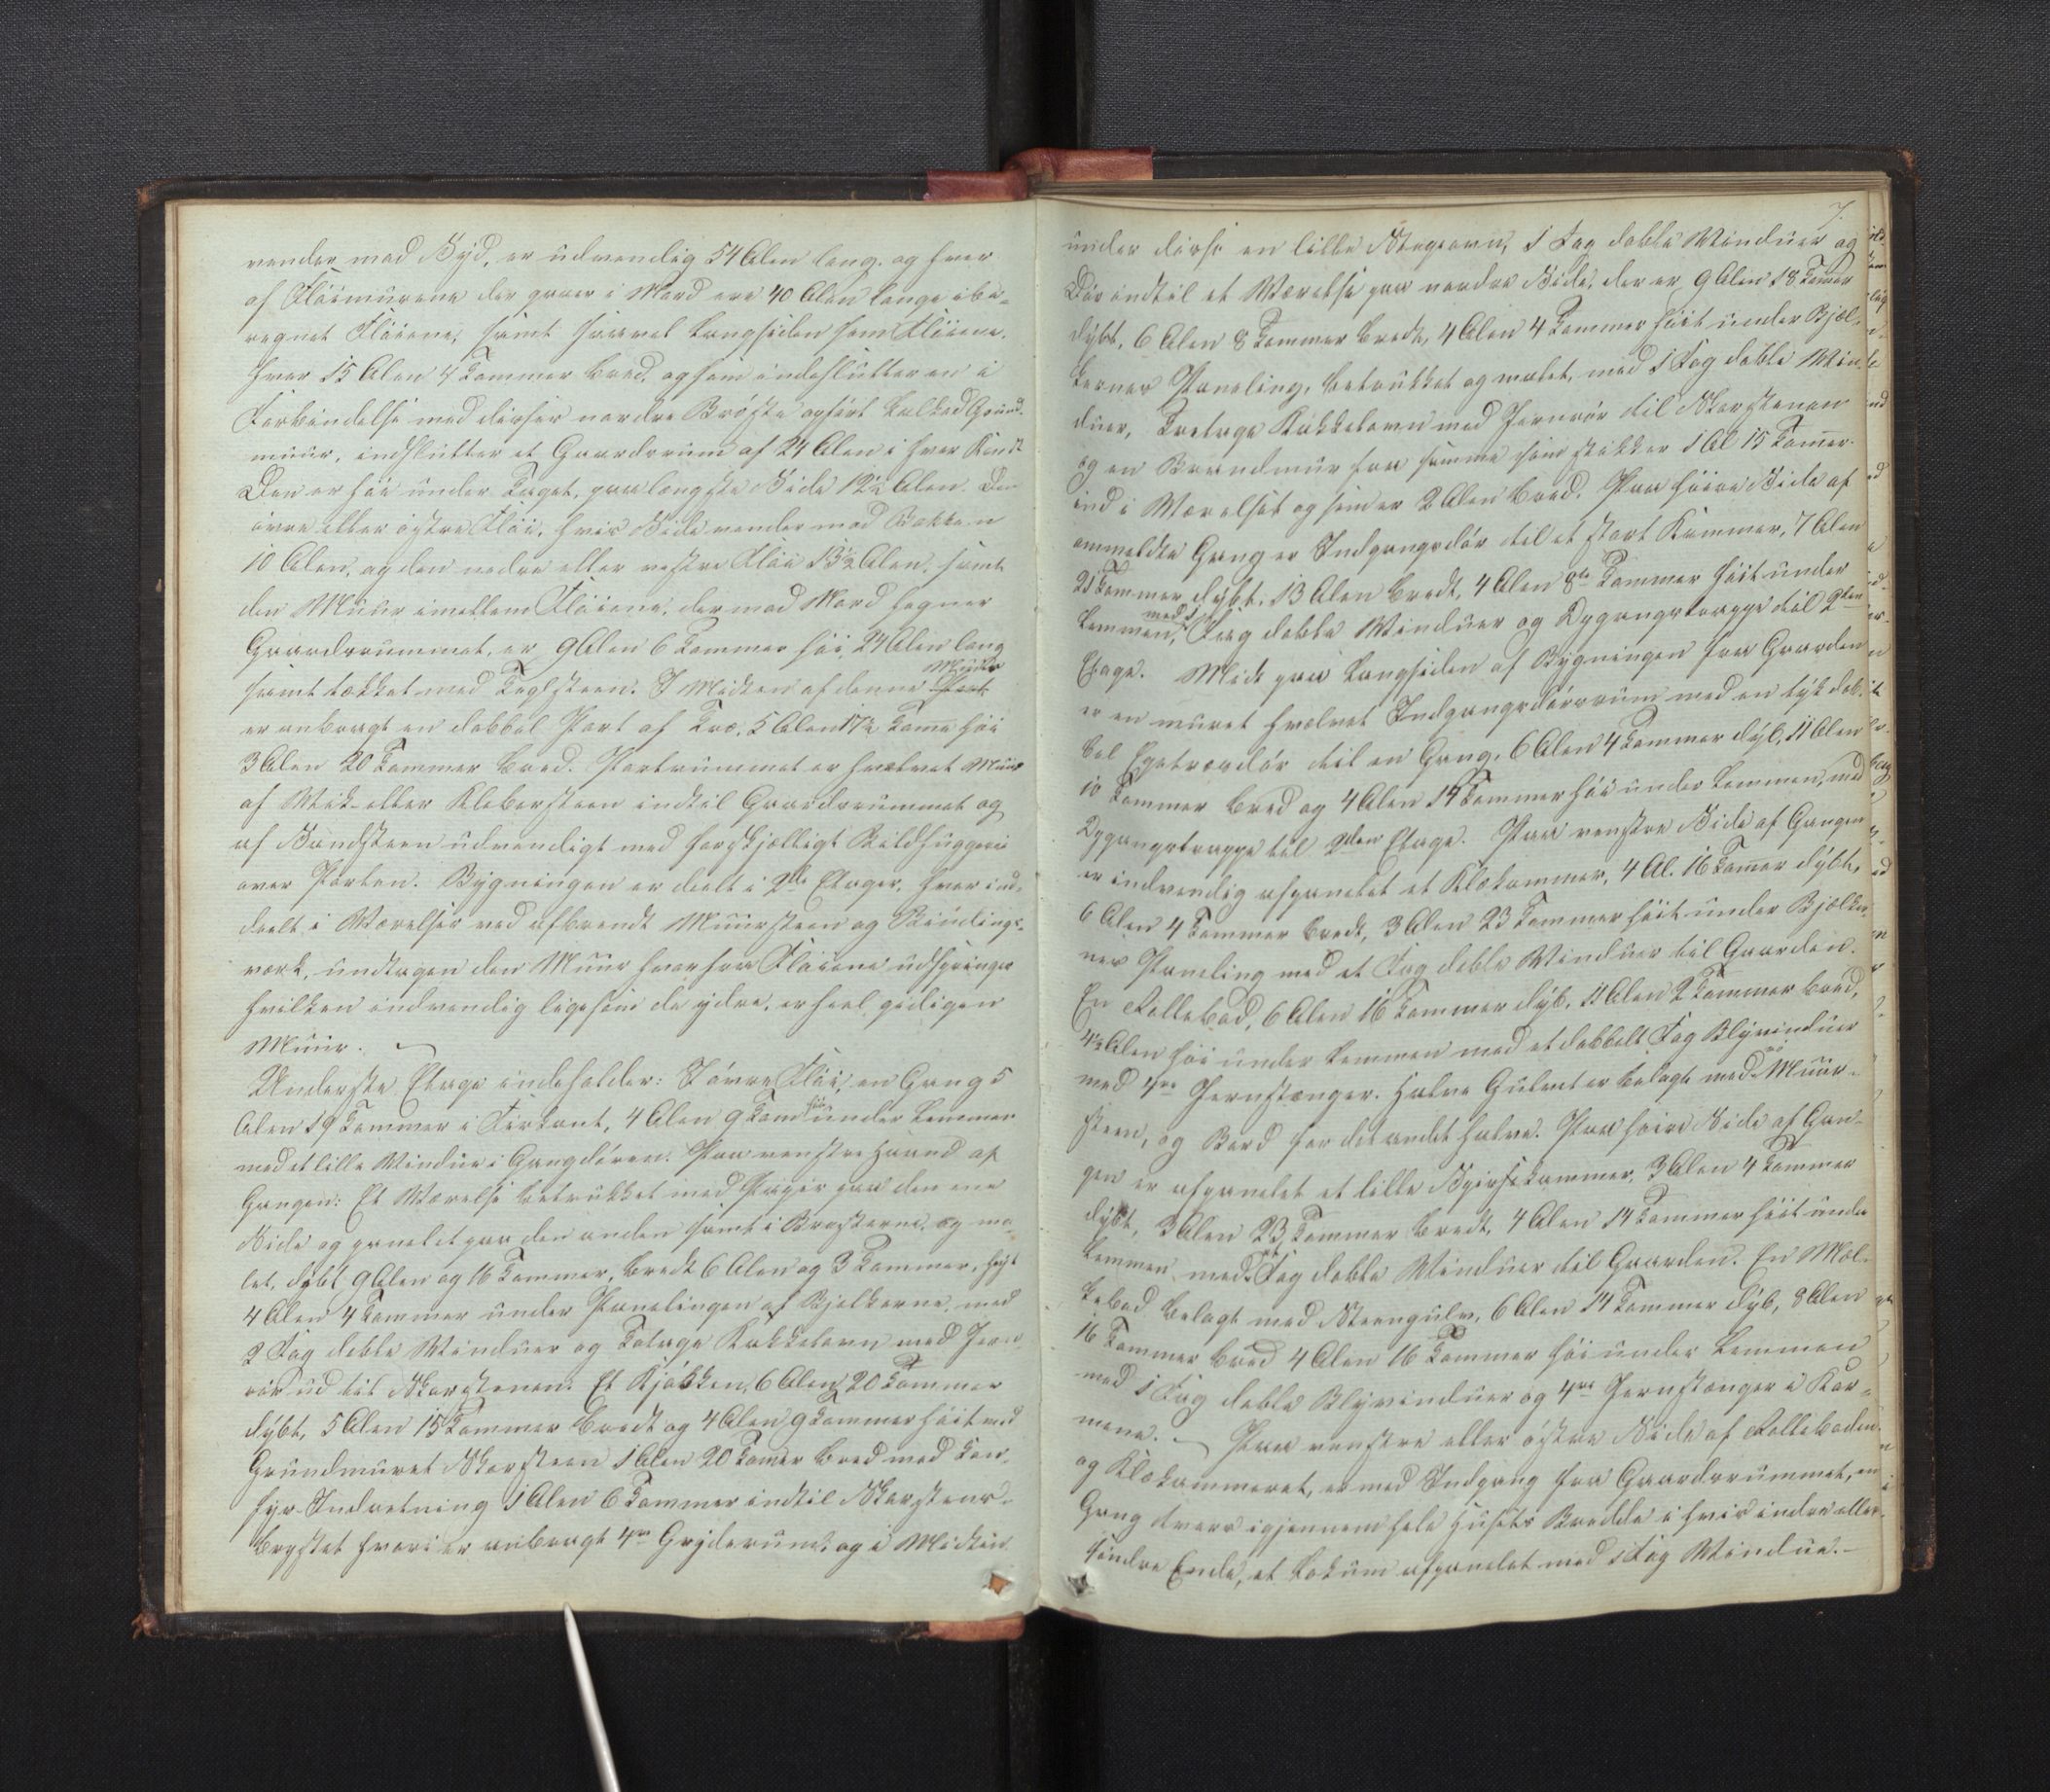 vender mod Syd, er udvendig 54 Alen lang. og hver
af Flöimurene der gaaer i Nord ere 40 Alen lange ibe-
regnet Flöiene, samt saavel Langsiden som Flöiene,
hver 15 Alen 4 Tommer bred, og som indeslutter en i
Forbindelse med disses nordre Bröste opfört kalket Grund-
muur, indslutter et Gaardsrum af 24 Alen i hver Kant
Den er höi under Taget, paa længste Side 12½ Alen. Den
övre eller östre Flöi, hvis Side vender mod Bakken
10 Alen, og den nedre eller vestre Flöi 13½ Alen, samt
den Muur imellem Flöiene, der mod Nord hegner
Gaardsrummet, er 9 Alen 6 Tommer höi, 24 Alen lang
samt tækket med Teglsteen. I Midten af denne Muur
er anbragt en dobbel Port af Træ, 5 Alen 17½ Tome höi
3 Alen 20 Tommer bred. Portrummet er hvælvet Muur
af Vik- eller Klebersteen indtil Gaardsrummet og
af Sandsteen udvendigt med forskjælligt Bildhuggeri
over Porten. Bygningen er deelt i 2de Etager, hver ind-
deelt i Værelser ved afbrendt Muursteen og Bindings-
værk, undtagen den Muur hvorfra Flöiene udspringer
hvilken indvendig ligesom de ydre, er heel gedigen
Muur.
Underste Etage indeholder: I övre Flöi, en Gang 5
Alen 19 Tommer i Firkant, 4 Alen 9 Tom höi under Lemmen
med et lille Vindue i Gangdören. Paa venstre Haand af
Gangen: Et Værelse betrukket med Papir paa den ene
Side og panelet paa den anden samt i Brösterne, og ma-
let, dybt 9 Alen og 16 Tommer, bredt 6 Alen og 3 Tommer, höjt
4 Alen 4 Tommer under Panelingen af Bjelkerne, med
2 Fag doble Vinduer og Toetage Kakkelovn med Jern-
rör ud til Skorstenen. Et Kjökken, 6 Alen 20 Tommer
dybt, 5 Alen 15 Tommer bredt og 4 Alen 9 Tommer höit med
Grundmuret Skorsteen 1 Alen 20 Tomer bred med Kom-
fyr-Indretning 1 Alen 6 Tommer indtil Skorstens-
brystet hvori er anbragt 4re Gryderum, og i Midten
7.
under disse en lille Stegeovn, 1 Fag doble Vinduer og
Dör indtil et Værelse paa nordre Side, der er 9 Alen 18 Tomer
dybt, 6 Alen 8 Tommer bredt, 4 Alen 4 Tommer höit under Bjæl-
kernes Paneling, betrukket og malet, med 1 Fag doble Vin-
duer, Toetage Kakkelovn med Jernrör til Skorstenen
og en Brandmur fra samme som stikker 1 Al 15 Tomer
ind i Værelset og som er 2 Alen bred. Paa höire Side af
ommeldte Gang er Indgangsdör til et stort Kammer, 7 Alen
21 Tommer dybt, 13 Alen bredt, 4 Alen 8te Tommer höit under
Lemmen, med 1 Fag doble Vinduer og Opgangstrappe til 2den
Etage. Midt paa Langsiden af Bygningen fra Gaarden
er en muret hvælvet Indgangsdörsrum med en tyk dob-
bel Egetræsdör til en Gang, 6 Alen 4 Tommer dyb, 11 Alen
10 Tommer bred og 4 Alen 14 Tommer höi under Lemmen, med
Opgangstrappe til 2den Etage. Paa venstre Side af Gangen
er indvendig afpanelet et Klækammer, 4 Al. 16 Tomer dybt,
6 Alen 4 Tommer bredt, 3 Alen 23 Tommer höit under Bjelker-
nes Paneling med et Fag doble Vinduer til Gaarden.
En Rollebod, 6 Alen 16 Tommer dyb, 11 Alen 2 Tommer bred,
4½ Alen höi under Lemmen med et dobbelt Fag Blyvinduer
med 4re Jernstænger. Halve Gulvet er belagt med Muur-
steen, og Bord for det andet halve. Paa höire Side af Gan-
gen er afpanelet et lille Spiisekammer, 3 Alen 4 Tommer
dybt, 3 Alen 23 Tommer bredt, 4 Alen 14 Tommer höit under
Lemmen med et Fag doble Vinduer til Gaarden. En Mæl-
kebod belagt med Steengulv, 6 Alen 14 Tommer dyb, 8 Alen
16 Tommer bred 4 Alen 16 Tommer höi under Lemmen
med 1 Fag doble Blyvinduer og 4re Jernstænger i Kar-
mene. Paa venstre eller östre Side af Rolleboden
og Klækammeret, er med Indgang fra Gaardsrummet, en
Gang tvers igjennem hele Husets Bredde i hvis indre eller
söndre Ende, et Lokum afpanelet med 1 Fag Vindue.